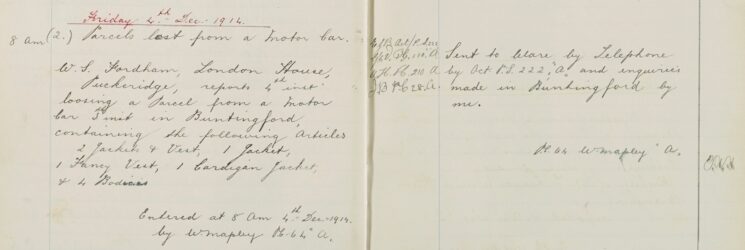 Friday 4th Dec. 1914.
8 am (2.) Parcels lost from a Motor Car.
W. S. Fordham, London House,
Puckeridge, reports 4th inst
loosing a Parcel from a Motor
Car in Buntingford,
containing the following Articles
2 Jackets & Vest, 1 Jacket,
1 Fancy Vest, 1 Cardigan Jacket,
& 4 Bodices
Entered at 8 Am 4th Dec. 1914.
by W mapley P.C. 64 "A.
Sent to Ware by Telephone
by Act P.S. 222, "A" and enquiries
made in Buntingford by
me.
P.C. 64 W mapley "A.